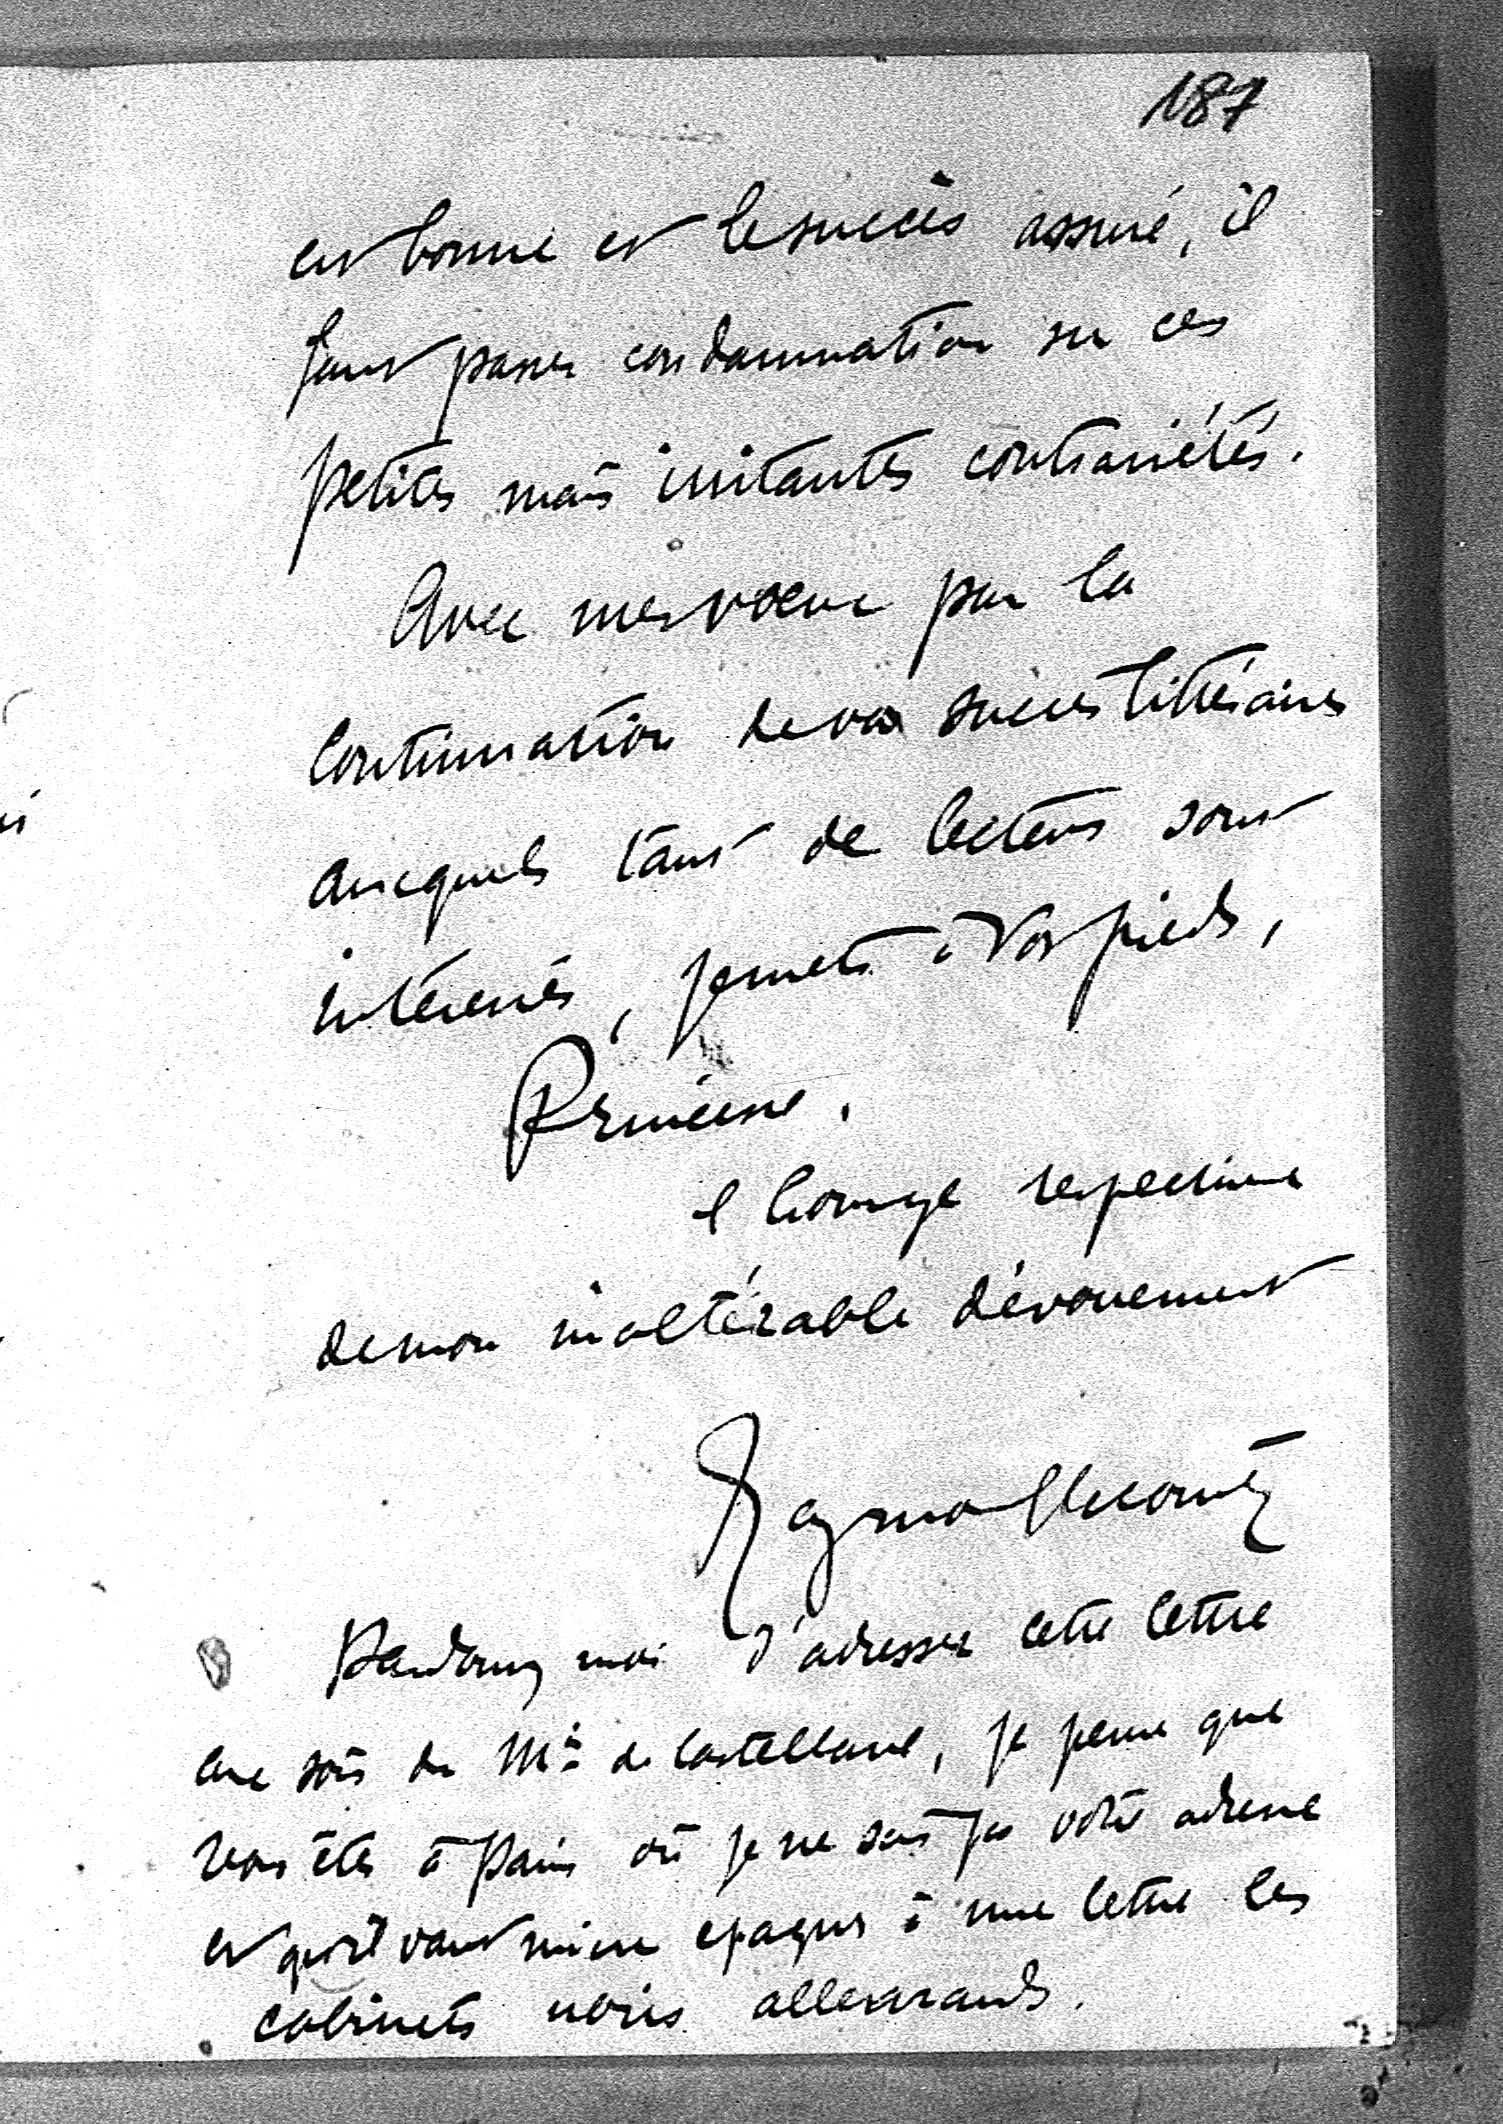 187
est bonne et le succès assuré, il
faut passer condamnation sur ces
petites mais irritantes contrariétés.
Avec mes vœux pour la
continuation de vos succès littéraires
auxquels tant de lecteurs sont
intéressés, je mets à vos pieds,
Princesse,
l'hommage respectueux
de mon inaltérable dévouement
Raymond Lecomte
Pardonnez moi d'adresser cette lettre
aux soins de Mme de Castellane, je pense que
vous êtes à Paris où je ne sais pas votre adresse
et qu'il vaut mieux épargner à une lettre les
cabinets noirs allemands.